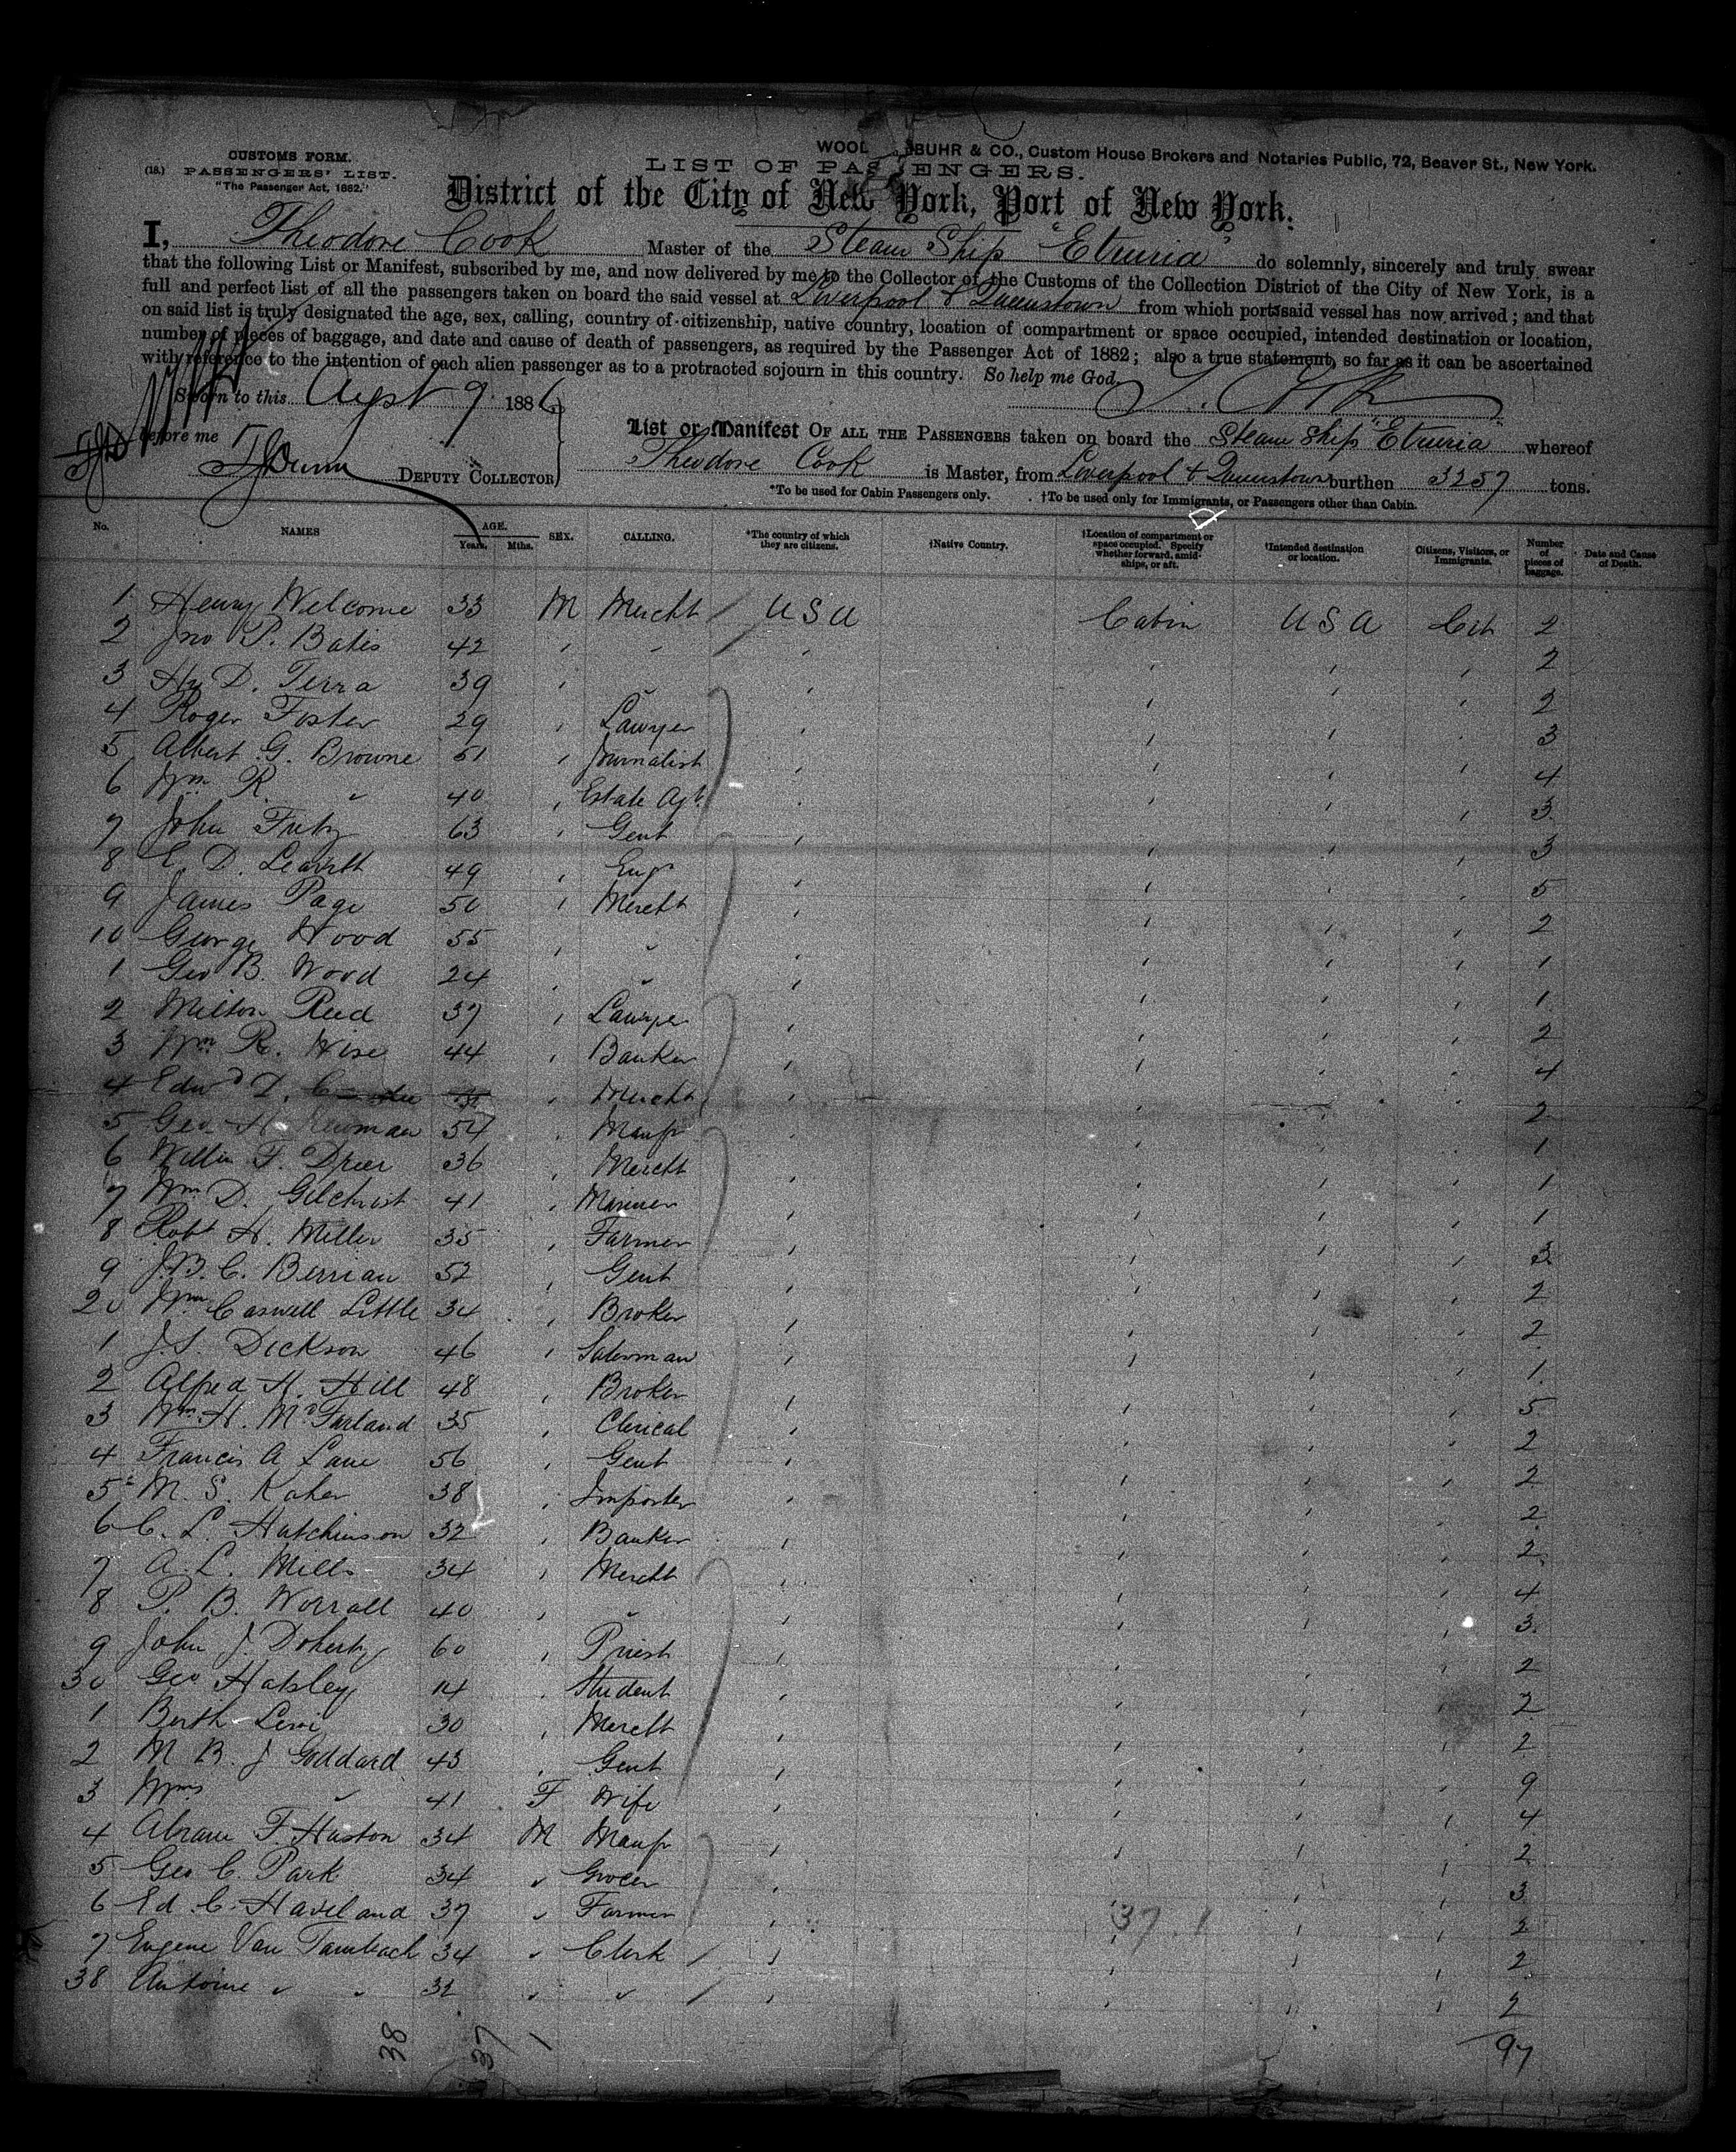 CUSTOMS FORM.
(18.) PASSENGERS' LIST.
"The Passenger Act, 1882."
WOOL BUHR & CO., Custom House Brokers and Notaries Public, 72, Beaver St., New York.
LIST OF PASSENGERS.
District of the City of New York, Port of New York.
I, Theodore Cook Master of the Steam Ship "Etruria" do solemnly, sincerely and truly swear
that the following List or Manifest, subscribed by me, and now delivered by me to the Collector of the Customs of the Collection District of the City of New York, is a
full and perfect list of all the passengers taken on board the said vessel at Liverpool & Queenstown from which port said vessel has now arrived; and that
on said list is truly designated the age, sex, calling, country of citizenship, native country, location of compartment or space occupied, intended destination or location,
number of pieces of baggage, and date and cause of death of passengers, as required by the Passenger Act of 1882; also a true statement, so far as it can be ascertained
with reference to the intention of each alien passenger as to a protracted sojourn in this country. So help me God.
Sworn to this Augst 9 1886
before me
DEPUTY COLLECTOR
List or Manifest OF ALL THE PASSENGERS taken on board the Steam Ship "Etruria" whereof
Theodore Cook is Master, from Liverpool & Queenstown burthen 3257 tons.
*To be used for Cabin Passengers only. †To be used only for Immigrants, or Passengers other than Cabin.
No. NAMES AGE. Years. Mths. SEX. CALLING. *The country of which they are citizens. †Native Country. †Location of compartment or space occupied. Specify whether forward, amidships, or aft. †Intended destination or location. Citizens, Visitors, or Immigrants. Number of pieces of baggage. Date and Cause of Death.
1 Henry Welcome 33 M Mercht U S A Cabin U S A Cit 2
2 Jno P. Bates 42 " " 2
3 Hy D. Terra 39 " " 2
4 Roger Foster 29 " Lawyer 3
5 Albert G. Browne 51 " Journalist 4
6 Wm R. " 40 " Estate Agt 3
7 John Fritz 63 " Gent 3
8 E. D. Leavitt 49 " Engr 5
9 James Page 50 " Mercht 2
10 George Wood 55 " " 1
1 Geo B. Wood 24 " " 1
2 Milton Reed 37 " Lawyer 2
3 Wm R. Wise 44 " Banker 4
4 Edwd D. " Mercht 2
5 Geo H. Newman 54 " Manfr 1
6 F. Dreer 36 " Mercht 1
7 Wm D. Gilchrist 41 " Mariner 1
8 Robt H. Miller 35 " Farmer 3
9 J.B.C. Berrian 52 " Gent 2
20 Wm Caswell Little 34 " Broker 2
1 J.S. Dickson 46 " Salesman 1
2 Alfred H. Hill 48 " Broker 5
3 Wm H. McFarland 35 " Clerical 2
4 Francis A Lane 56 " Gent 2
5 M. S. Kaher 38 " Importer 2
6 C. L. Hutchinson 32 " Banker 2
7 A. L. Mills 34 " Mercht 4
8 P. B. Worrall 40 " " 3
9 John J. Doherty 60 " Priest 2
30 Geo Hatsley 14 " Student 2
1 Berth Levi 30 " Mercht 2
2 M B. J Goddard 43 " Gent 9
3 Mrs " 41 F Wife 4
4 Abram F. Huston 34 M Manfr 2
5 Geo C. Park 34 " Grocer 3
6 Ed. C. Haviland 37 " Farmer 2
7 Eugene Van Tambach 34 " Clerk 2
38 Antoine " " 32 " " 2
37 1
38 37 1
97